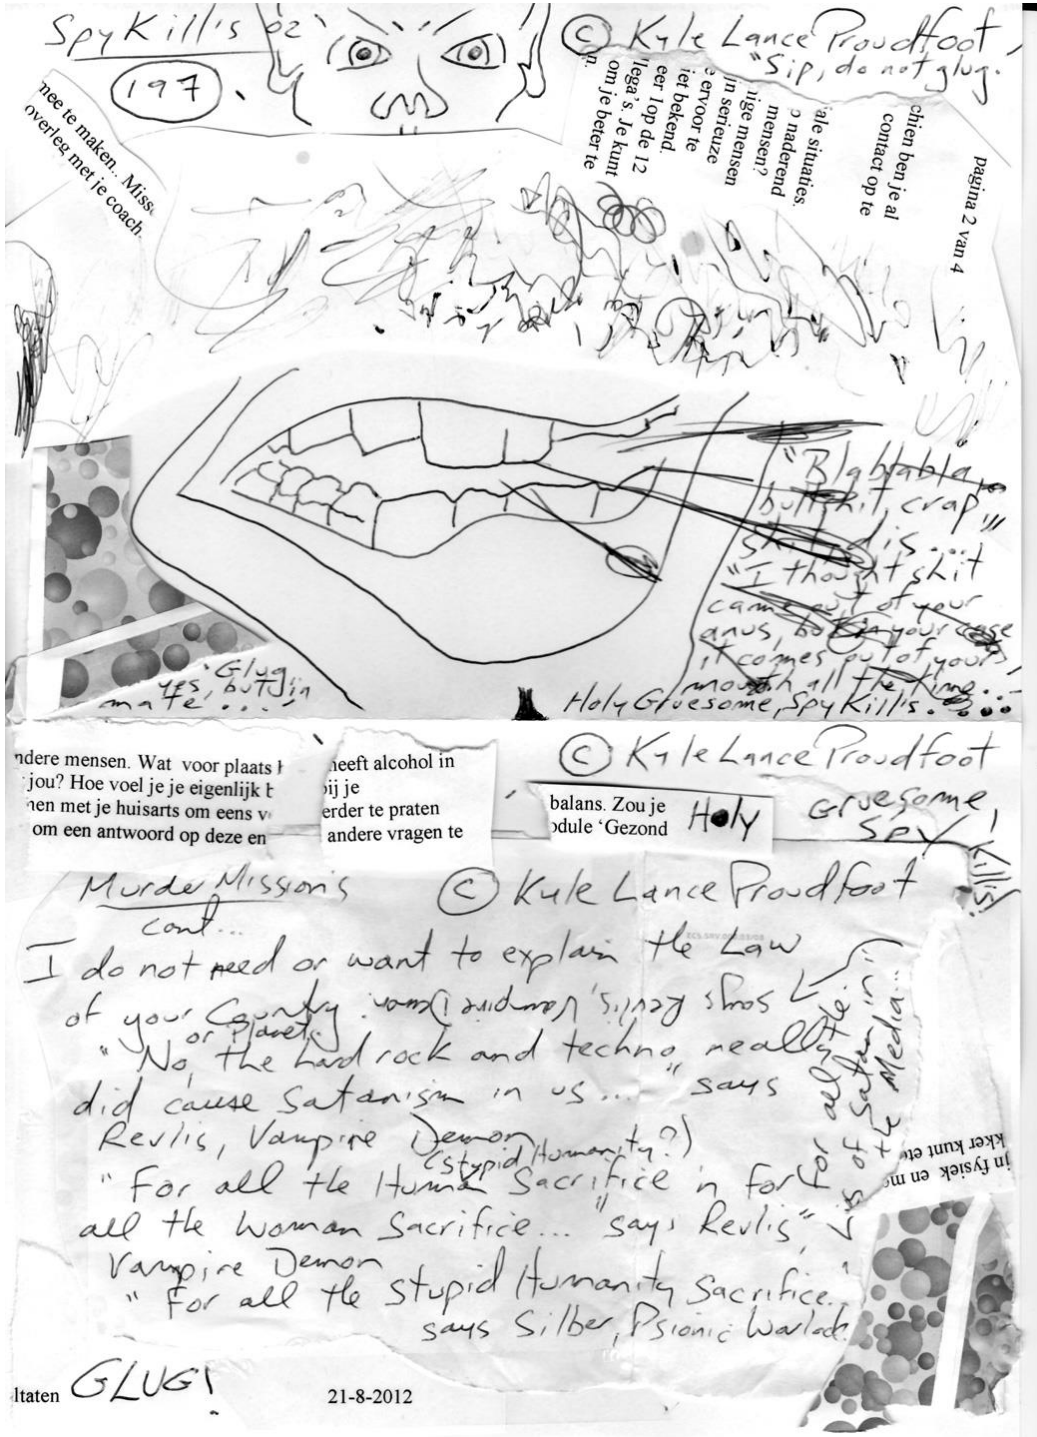 SpyKill's 02
197.
© Kyle Lance Proudfoot,
"Sip, do not glug.
nee te maken.. Miss
overleg met je coach.
ale situaties.
naderend
mensen?
nige mensen
ijn serieuze
ervoor te
iet bekend.
eer 1op de 12
llega's. Je kunt
om je beter te
n.
chien ben je al
contact op te
pagina 2 van 4
"Blablabla,
bullshit, crap,"
shit, dis....
"I thought shit
came out of your
anus, but in your case
it comes out of yours,
mouth all the time...
"Glug
yes, but in
mate....."
Holy Gruesome, Spy Kill's.
ndere mensen. Wat voor plaats h
jou? Hoe voel je je eigenlijk b
nen met je huisarts om eens v
om een antwoord op deze en
heeft alcohol in
bij je
erder te praten
andere vragen te
© Kyle Lance Proudfoot
balans. Zou je
odule 'Gezond
Holy
Gruesome,
Spy
Kill's!
Murder Mission's
cont...
© Kyle Lance Proudfoot
I do not need or want to explain the Law
of your Country.
or Planet.
says Revlis, Vampire Demon.
"No, the hard rock and techno, really
did cause Satanism in us...." says
Revlis, Vampire Demon
(Stupid Humanity?)
"For all the Human Sacrifice 'n for
all the Woman Sacrifice..." says Revlis,
Vampire Demon
"For all the Stupid Humanity Sacrifice."
says Silber, Psionic Warlock.
For all the
of Satan in
the Media...
kker kunt ete
jn fysiek en me
ltaten
GLUG!
21-8-2012